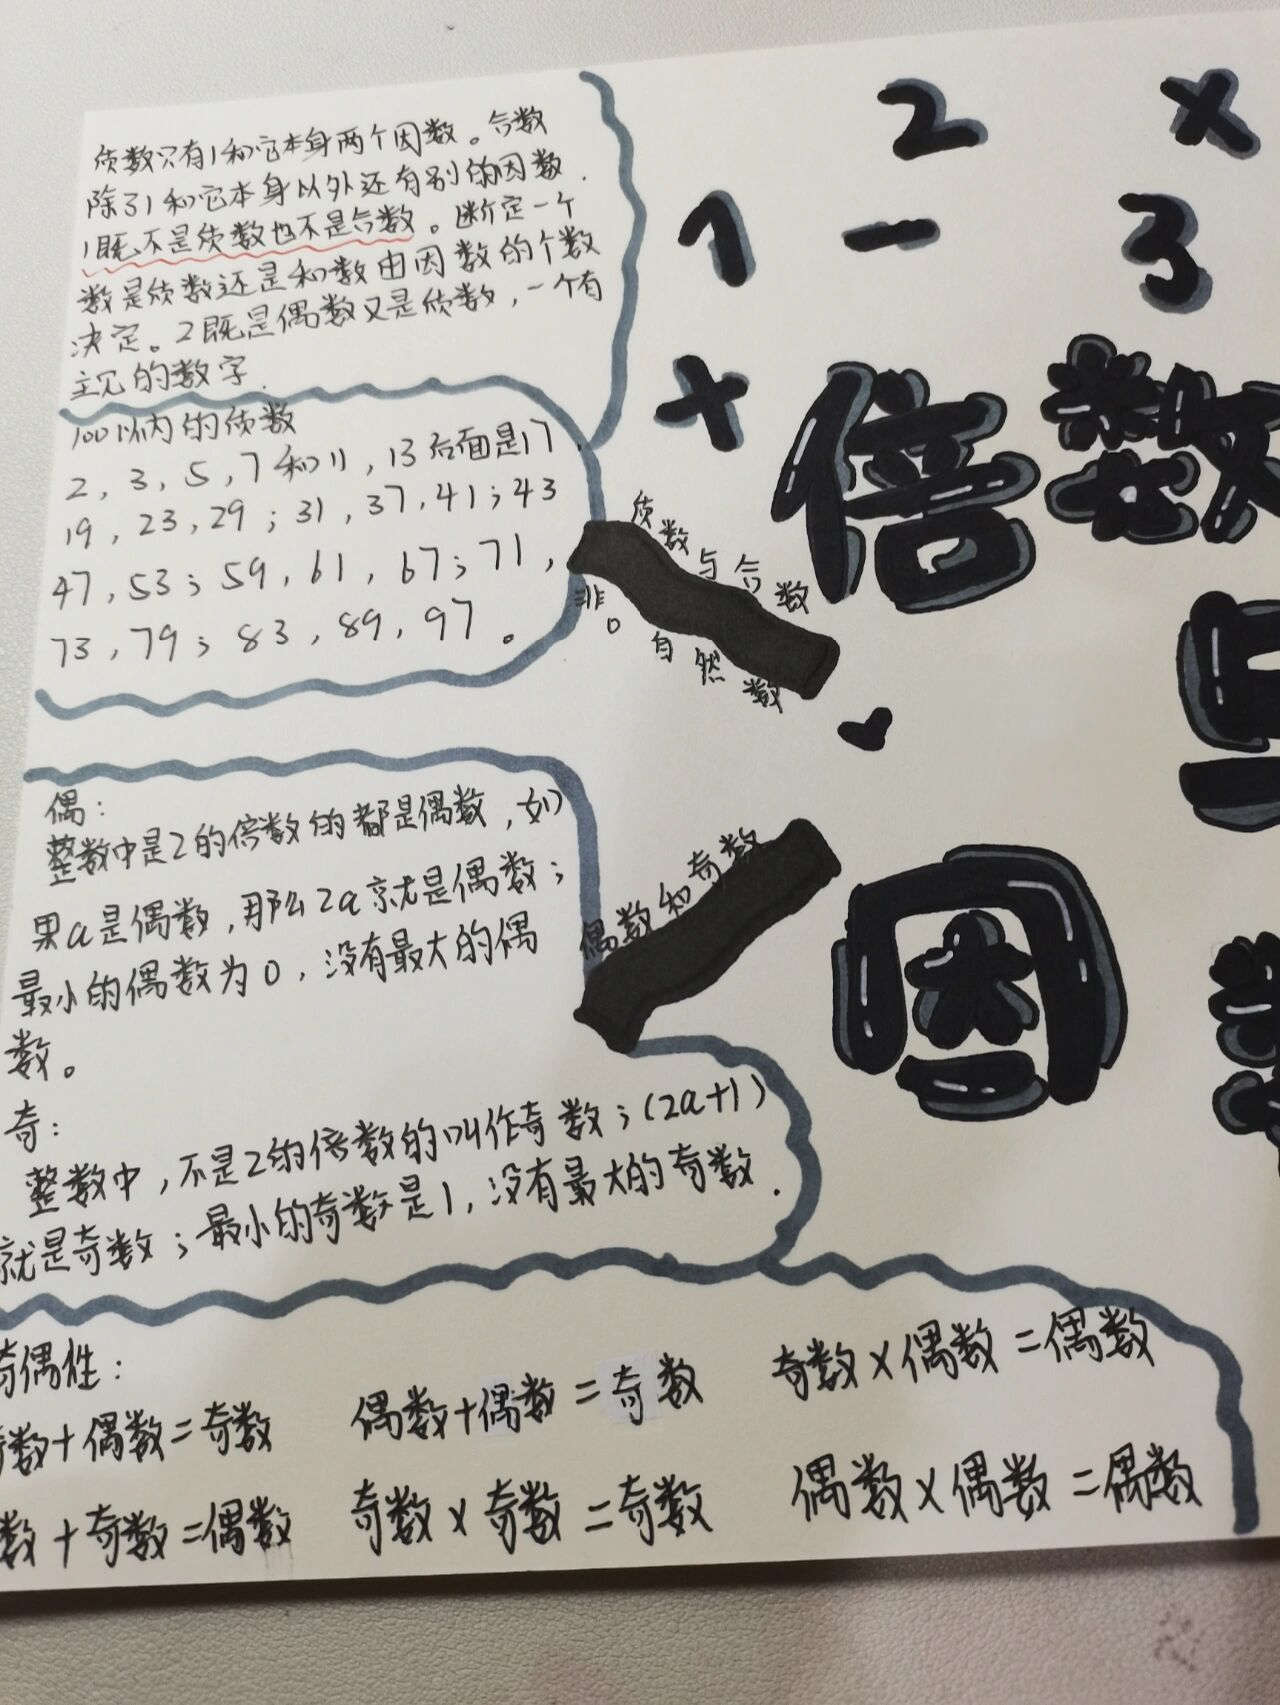 质数只有1和它本身两个因数。合数
除了1和它本身以外还有别的因数.
1既不是质数也不是合数。断定一个
数是质数还是和数由因数的个数
决定。2既是偶数又是质数,一个有
主见的数字.
100以内的质数
2,3,5,7和11,13后面是17
19,23,29;31,37,41;43
47,53;59,61,67;71,
73,79;83,89,97。
2 ×
1 - 3
+ 倍数
与
因数
质数与合数
非0自然数
偶数和奇数
偶:
整数中是2的倍数的都是偶数,如
果a是偶数,那么2a就是偶数;
最小的偶数为0,没有最大的偶
数。
奇:
整数中,不是2的倍数的叫作奇数;(2a+1)
就是奇数;最小的奇数是1,没有最大的奇数.
奇偶性:
奇数+偶数=奇数 偶数+偶数=奇数 奇数×偶数=偶数
数+奇数=偶数 奇数×奇数=奇数 偶数×偶数=偶数